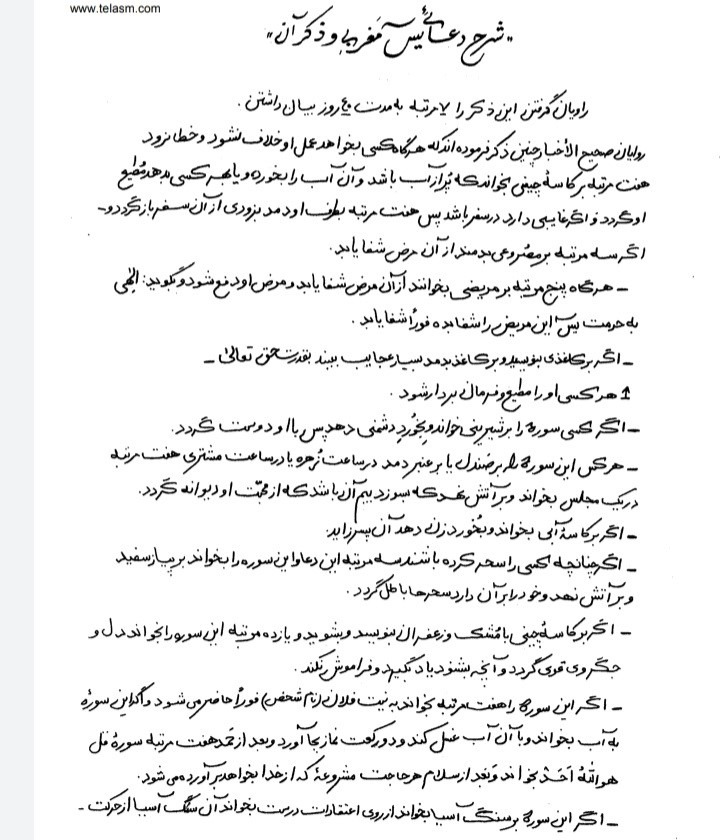 www.telasm.com
"شرح دعائے یس مغربی و ذکر آن"
راویان گرفتن این ذکر را ۷ مرتبه به مدت ۴۰ روز بیان داشتن .
روایان صحیح الأخبار چنین ذکر فرموده اند که هرگاه کسی بخواهد عمل او خلاف نشود و خطا نرود
هفت مرتبه بر کاسهٔ چینی بخواند که پُر از آب باشد و آن آب را بخورد و یا بهر کسی بدهد مُطیع
او گردد و اگر غایبی دارد در سفر باشد پس هفت مرتبه بطرف او دمد بزودی از آن سفر باز گردد و -
اگر سه مرتبه بر مصروعی بدمند از آن مرض شفا یابد.
- هرگاه پنج مرتبه بر مریضی بخوانند از آن مرض شفا یابد و مرض او دفع شود و بگوید: الهی
به حرمت یس این مریض را شفا بده فوراً شفا یابد .
- اگر بر کاغذی بنویسد و بر کاغذ بدمد بسیار عجایب بیند بقدرت حق تعالیٰ -
هر کسی او را مطیع و فرمان بردار شود .
- اگر کسی سوره را بر شیرینی خواند و بخورد دشمنی دهد پس با او دوست گردد.
- هرکس این سوره را بر صندل یا بر عنبر دمد در ساعت زُهره یا در ساعت مشتری هفت مرتبه
در یک مجلس بخواند و بر آتش نهد که بسوزد بیم آن باشد که از محبّت او دیوانه گردد.
- اگر بر کاسهٔ آبی بخواند و بخورد زن دهد آن پسر زاید.
- اگر چنانچه کسی را سحر کرده باشند سه مرتبه این دعا و این سوره را بخواند بر پیاز سفید
و بر آتش نهد و خود را بر آن دارد سحرها باطل گردد .
- اگر بر کاسهٔ چینی با مُشک و زعفران بنویسد و بشوید و یازده مرتبه این سوره را بخواند دل و
جگر وی قوی گردد و آنچه بشنود یاد گیرد و فراموش نکند.
- اگر این سوره را هفت مرتبه بخواند به نیت فلان (نام شخص) فوراً حاضر می شود و اگر این سورهٔ
به آب بخواند و با آن آب غسل کند و دو رکعت نماز بجا آورد و بعد از حَمد هفت مرتبه سورهٔ قل
هواللهُ اَحَدْ بخواند و بَعد از سلام هر حاجت مشروعهٔ که از خدا بخواهد برآورده می شود.
- اگر این سورهٔ بر سنگ آسیا بخواند از روی اعتقادات درست بخواند آن سنگ آسیا از حرکت -